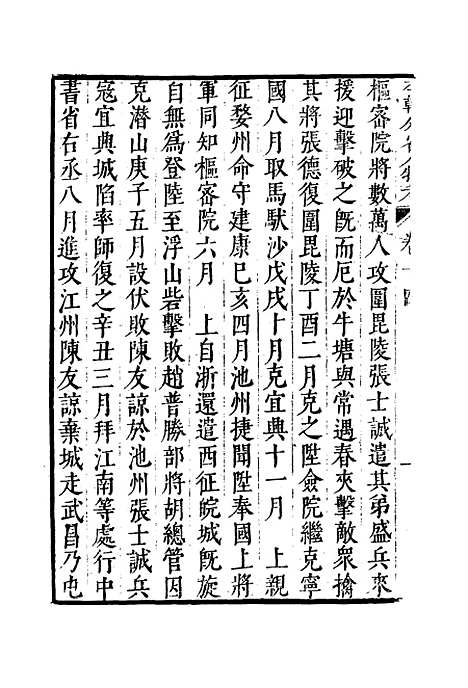 樞審院將數萬人攻圍毘陵張士誠遣其弟盛兵來
援迎擊破之旣而厄於牛塘與常遇春夾擊敵衆擒
其將張德復圍毘陵丁酉二月克之陞僉院繼克寧
國八月取馬馱沙戊戌十月克宜興十一月　上親
征婺州命守建康巳亥四月池州捷聞陞奉國上將
軍同知樞審院六月　上自浙還遣西征皖城旣旋
自無爲登陸至浮山砦擊敗趙普勝部將胡總管因
克潛山庚子五月設伏敗陳友諒於池州張士誠兵
寇宜興城陷率師復之辛丑三月拜江南等處行中
書省右丞八月進攻江州陳友諒棄城走武昌乃屯